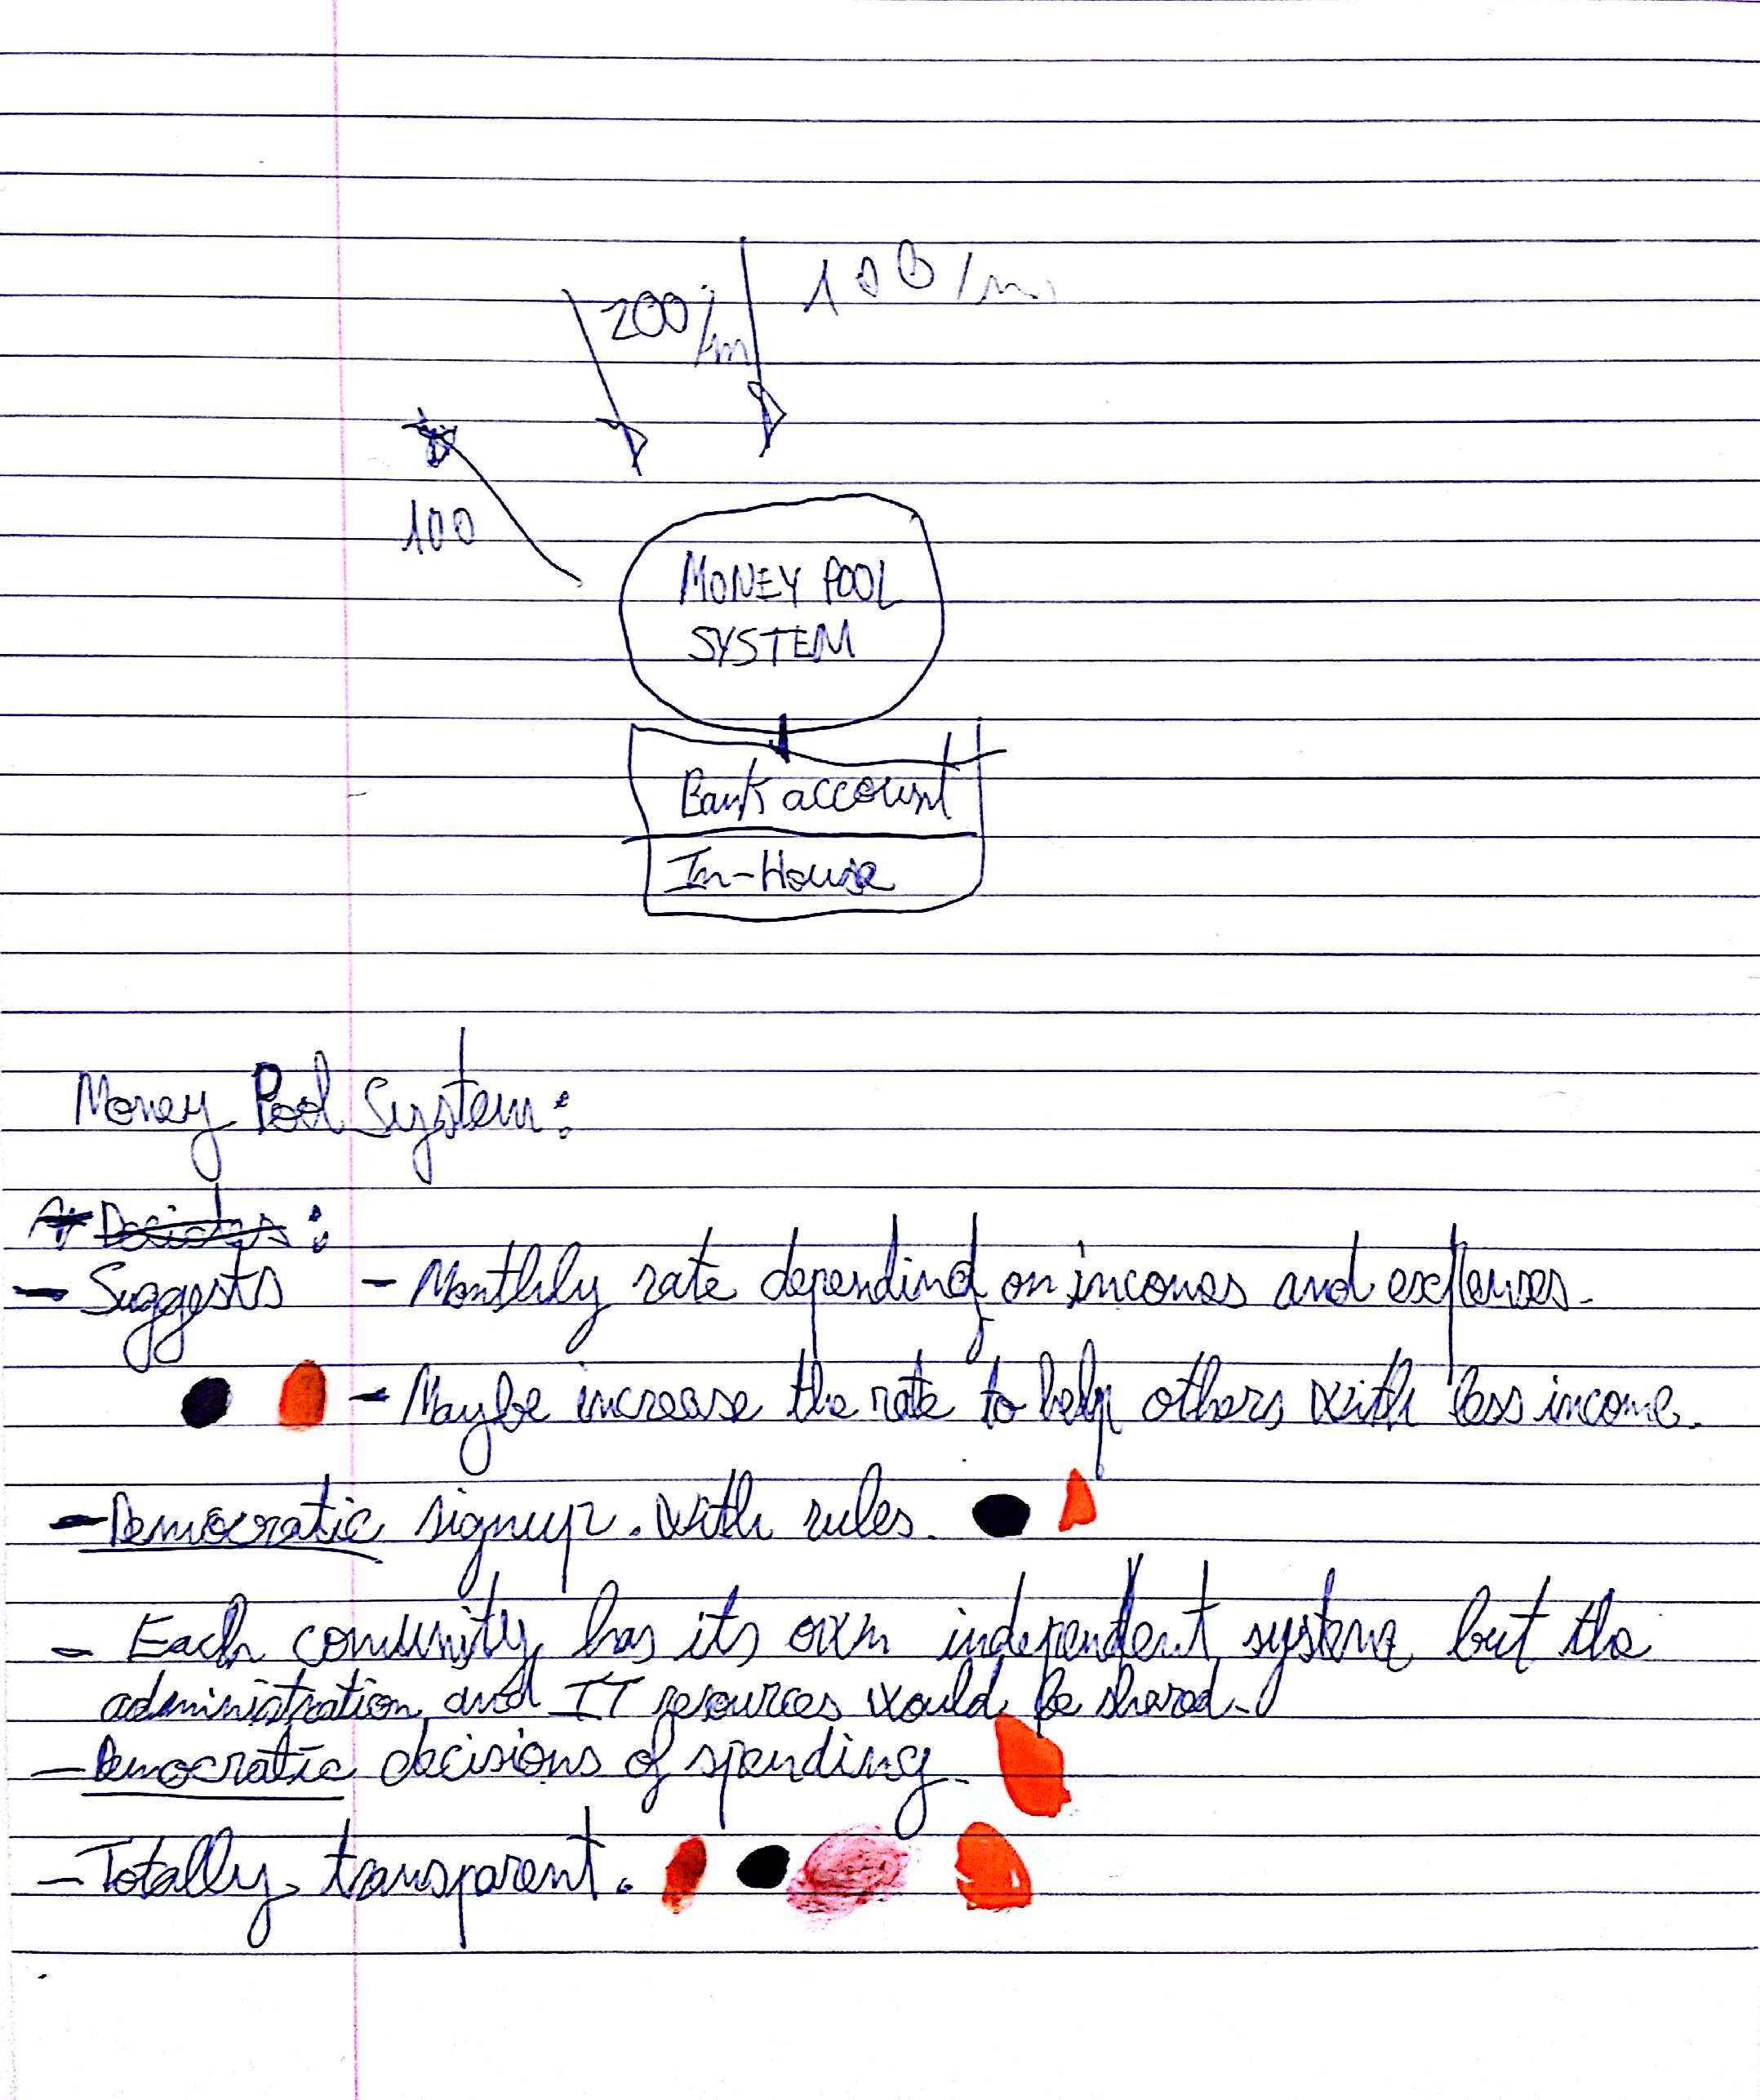 100/m
200/m
100
MONEY POOL
SYSTEM
Bank account
In-House
Money Pool System:
Decides:
- Suggests - Monthly rate depending on incomes and expenses.
- Maybe increase the rate to help others with less income.
- Democratic signup. With rules.
- Each comunity has its own independent system but the
administration and IT resources would be shared.
- Democratic decisions of spending.
- Totally transparent.